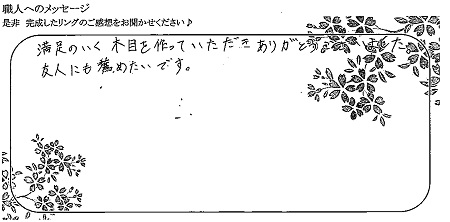 職人へのメッセージ
是非 完成したリングのご感想をお聞かせください♪
満足のいく木目を作っていただきありがとうございました。
友人にも薦めたいです。